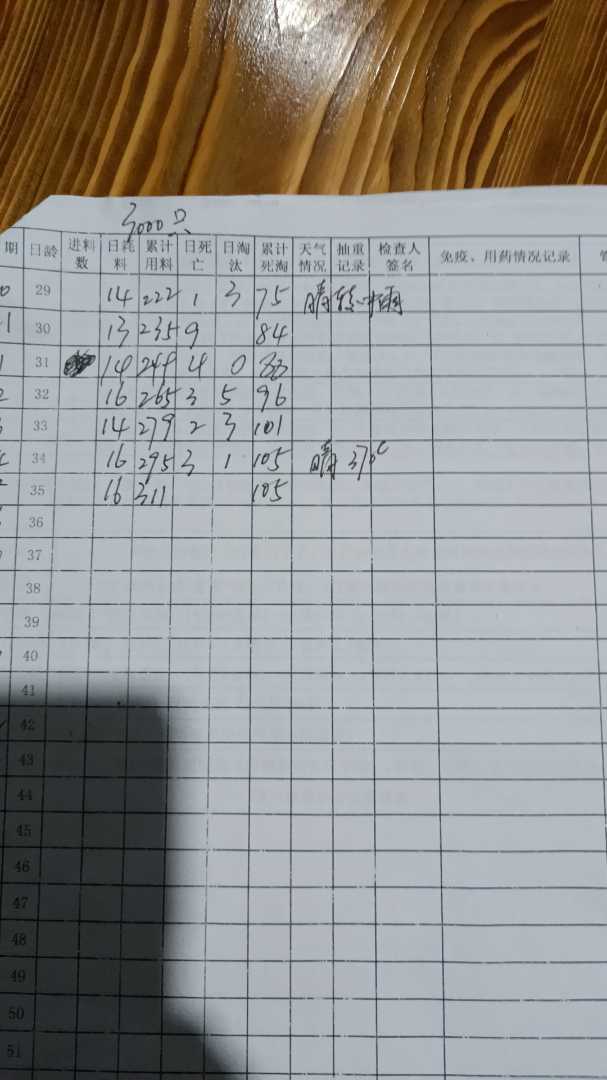 3000只
期 日龄 进料数 日耗料 累计用料 日死亡 日淘汰 累计死淘 天气情况 抽重记录 检查人签名 免疫、用药情况记录
29 14 222 1 3 75 晴转中雨
30 13 235 9 84
31 14 249 4 0 88
32 16 265 3 5 96
33 14 279 2 3 101
34 16 295 3 1 105 晴 37℃
35 16 311 105
36
37
38
39
40
41
42
43
44
45
46
47
48
49
50
51